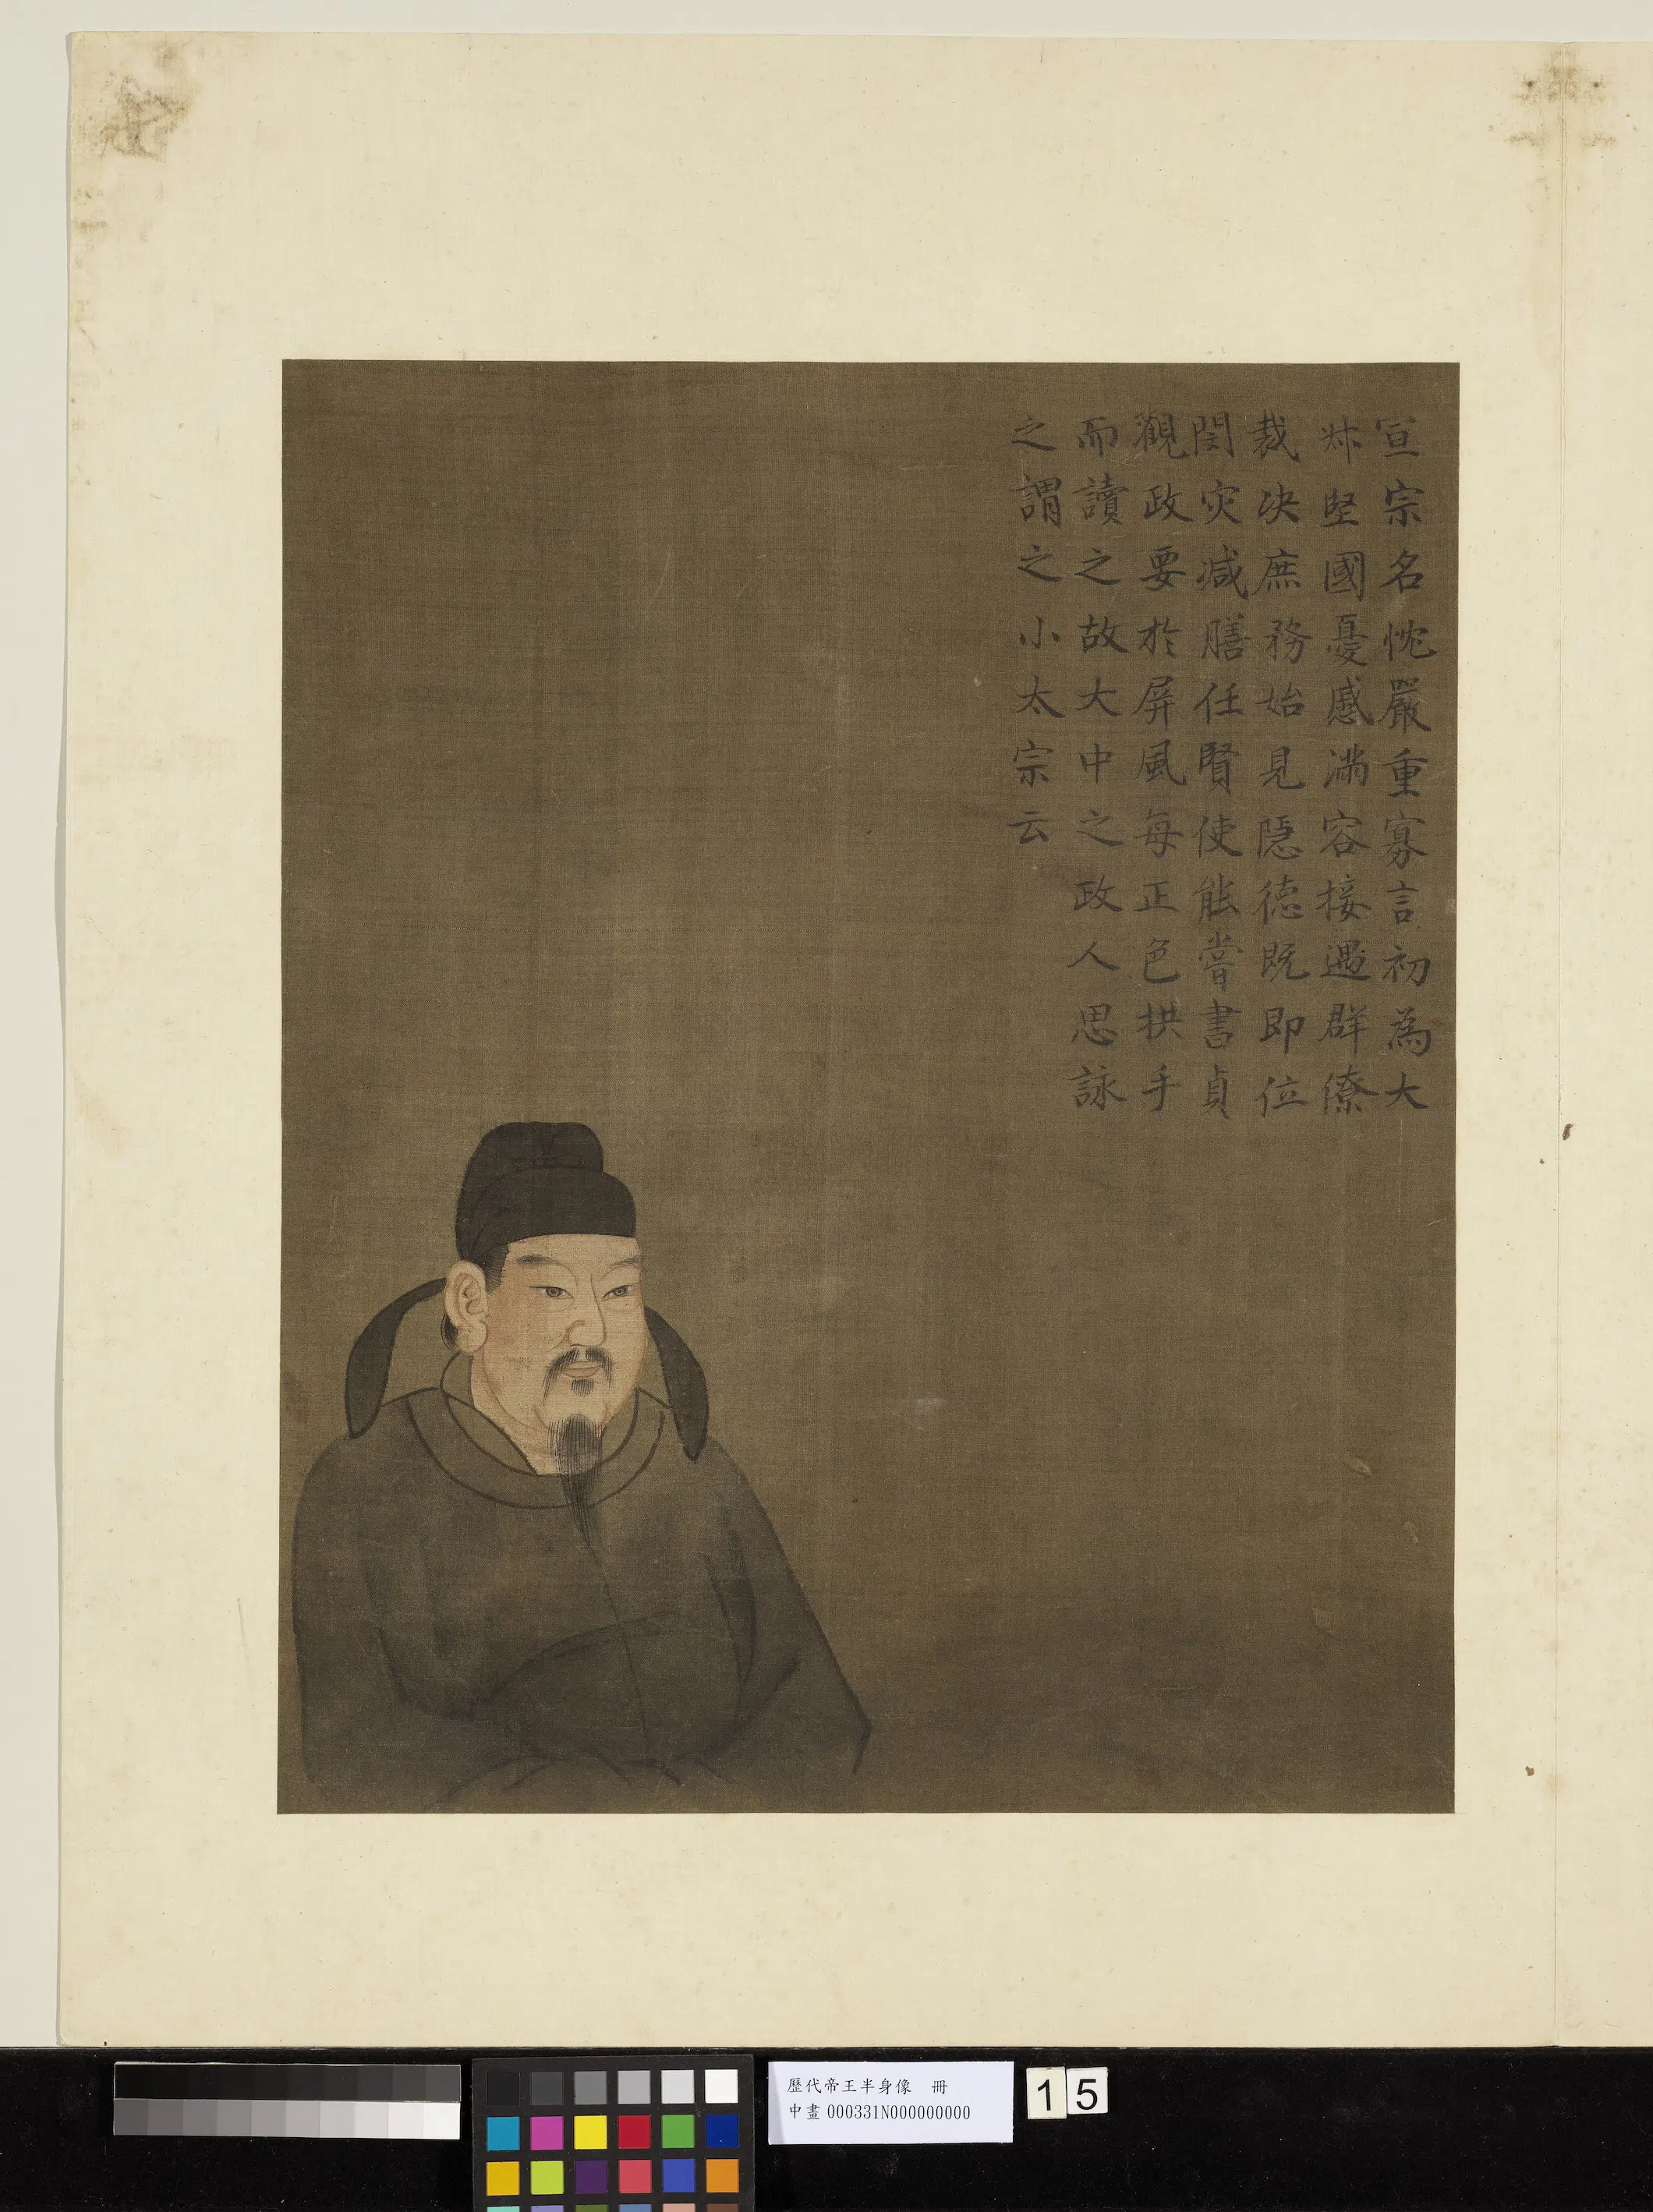 宣宗名忱嚴重寡言初為大
叔堅國憂慼滿容接遇群僚
裁决庶務始見隱德既即位
閔灾減膳任賢使能嘗書貞
觀政要於屏風每正色拱手
而讀之故大中之政人思詠
之謂之小太宗云
歷代帝王半身像 冊
中畫000331N000000000
15